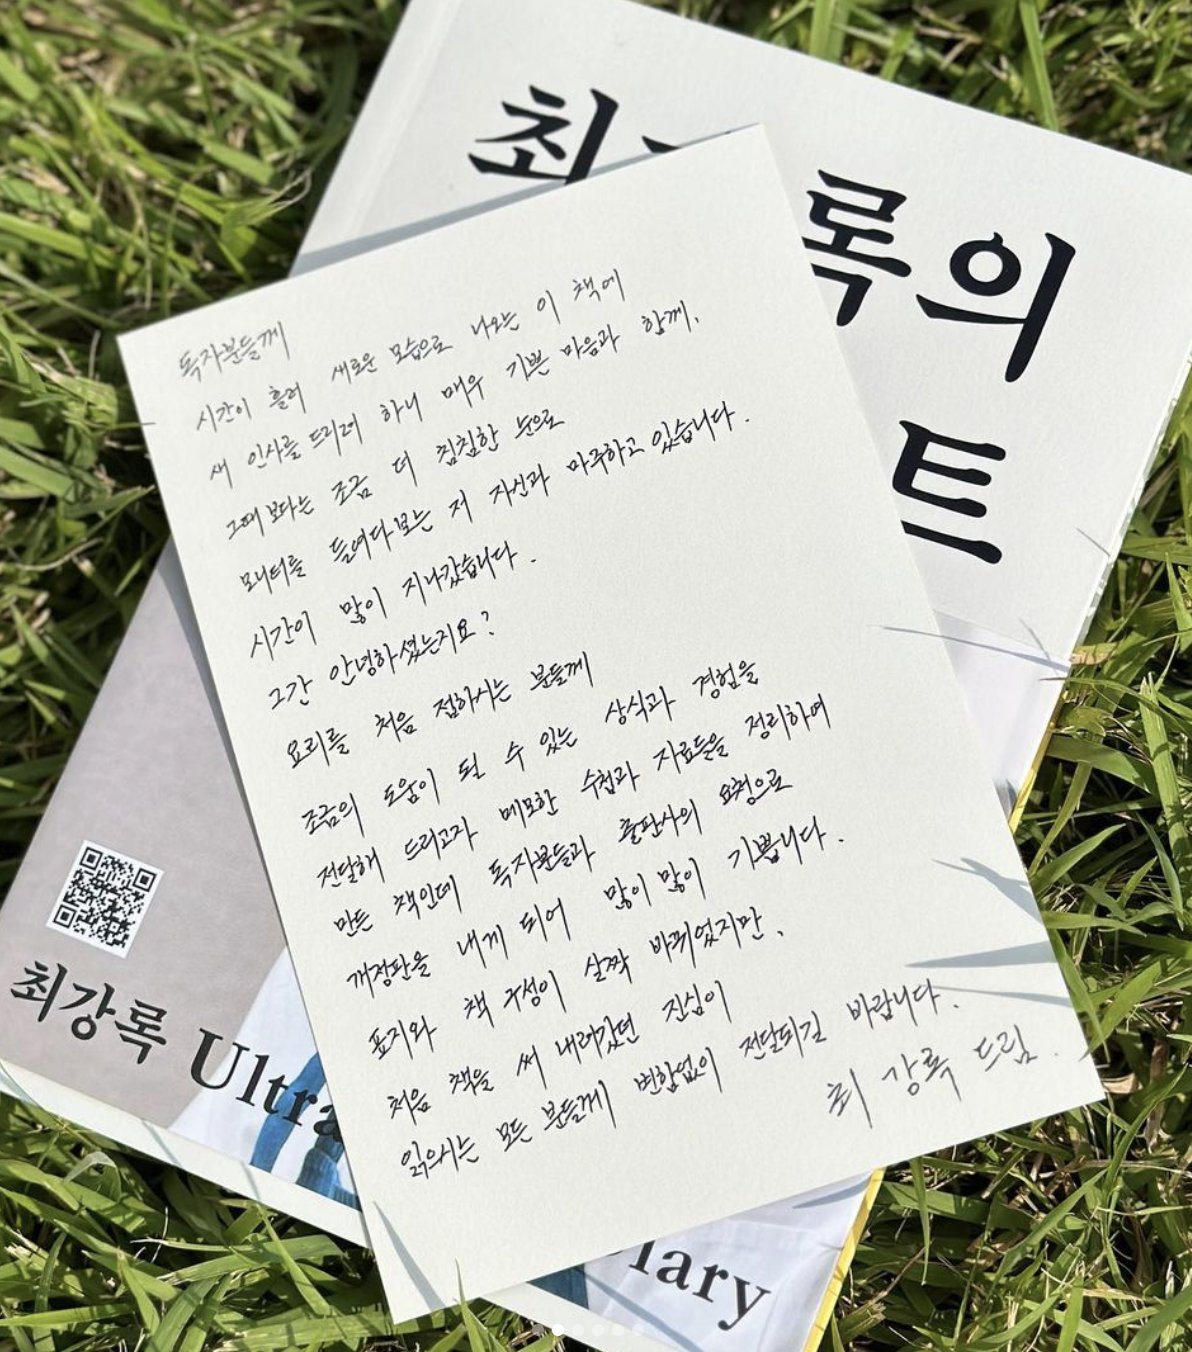 최
록의
트
독자분들께
시간이 흘러 새로운 모습으로 나오는 이 책에
새 인사를 드리려 하니 매우 기쁜 마음과 함께,
그때보다는 조금 더 침침한 눈으로
모니터를 들여다보는 저 자신과 마주하고 있습니다.
시간이 많이 지나갔습니다.
그간 안녕하셨는지요?
요리를 처음 접하시는 분들께
조금의 도움이 될 수 있는 상식과 경험을
전달해 드리고자 메모한 수첩과 자료들을 정리하여
만든 책인데 독자분들과 출판사의 요청으로
개정판을 내게 되어 많이 많이 기쁩니다.
표지와 책 구성이 살짝 바뀌었지만,
처음 책을 써 내려갔던 진심이
읽으시는 모든 분들께 변함없이 전달되길 바랍니다.
최 강록 드림.
최강록 Ultra
lary